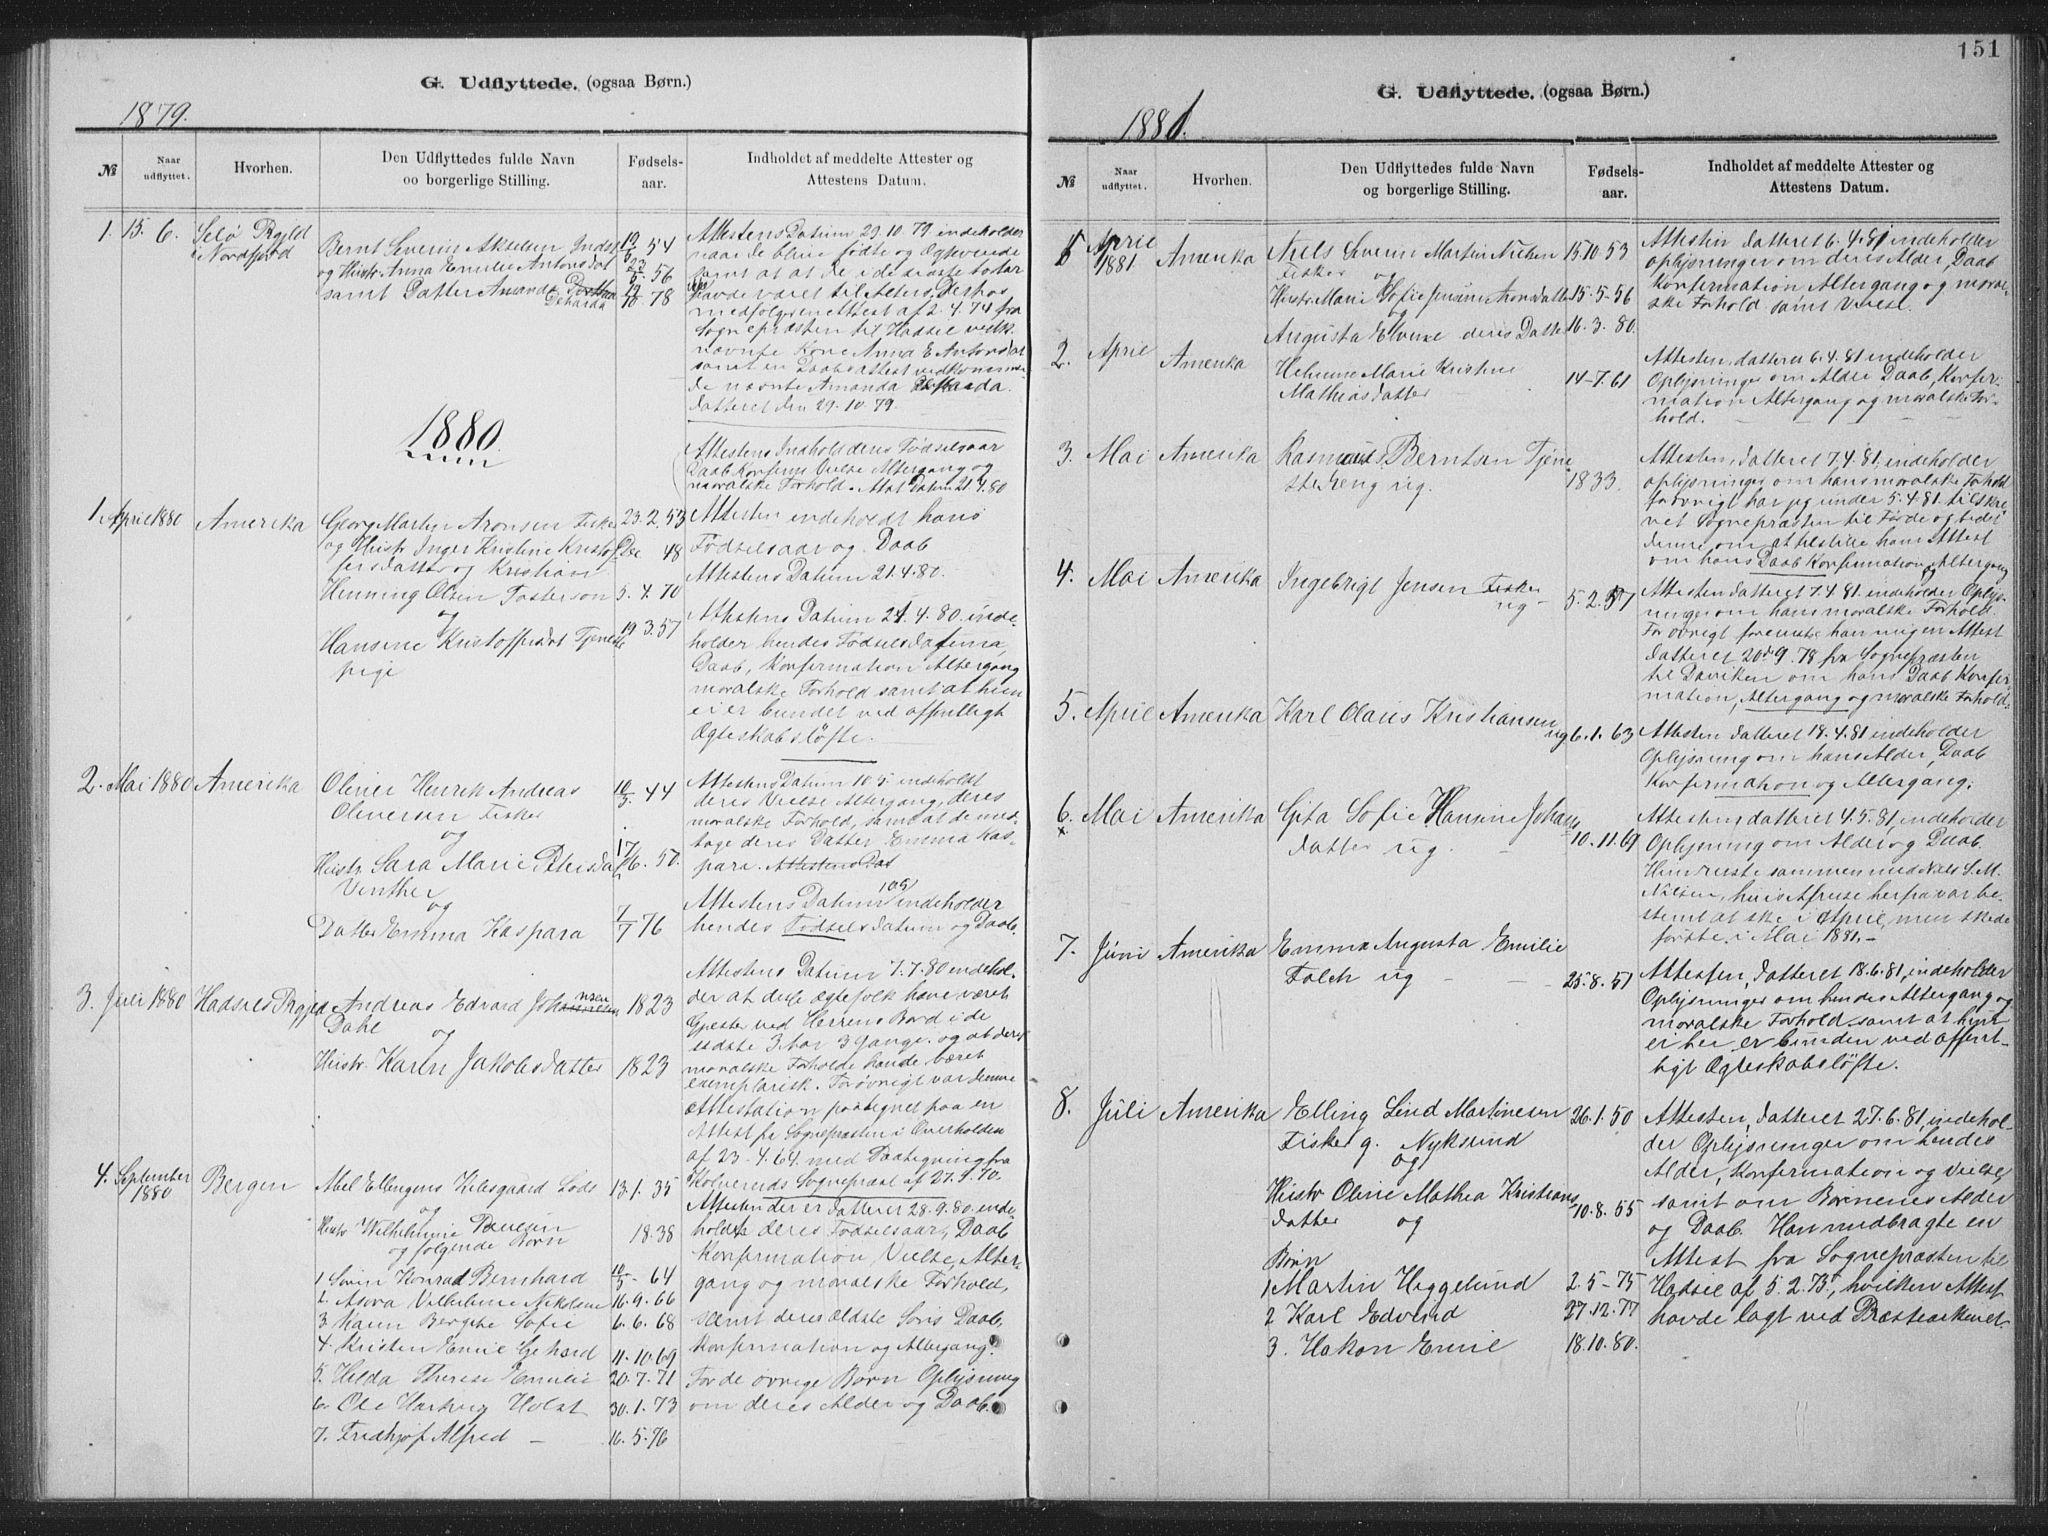 G. Udflyttede. (ogsaa Børn.)
1879.
№
Naar udflyttet.
Hvorhen.
Den Udflyttedes fulde Navn
oo borgerlige Stilling.
Fødsels-
aar.
Indholdet af meddelte Attester og
Attestens Datum.
1. 15. 6. Selø Prgjld
Nordfjord
Bernt Severin Akselsen Inds
og Hustr. Anna Emilie Antonsdat
samt Datter Amanda
Deharda
54
56
78
Attestens Datum 29.10.79 indeholder
naar de blive fødte og Egteviede
samt at de i de sidste to Aar
havde været til Alters. Derhos
medfølger en Attest af 2.4.74 fra
Sognepræsten til Hadsel vedk.
nævnte Kone Anna E Antonsdat
samt en Daabsattest vedkommen-
de nævnte Amanda Deharda.
datteret den 29.10.79.
1880.
Attestens Indhold deres Fødselsaar
Daab Konfirm Vielse Altergang og
moralske Forhold. Attest Datum 21.4.80
1 April 1880 Amerika
Georg Martin Aronsen Fisker
og Hustr Inger Kristine Kristof
fersdatter og Kristian
Henning Olsen Fosterson
og
Hansine Kristoffersdat Tjeneste
pige
23.2.53
Dec 48
5.4.70
19 3.57
Attesten indeholdt hans
Fødselsaar og Daab
Attestens Datum 21.4.80.
Attestens Datum 21.4.80. inde-
holder hendes Fødselsdatum,
Daab, Konfirmation, Altergang
moralske Forhold samt at hun
ei er bundet ved offentligt
Egteskabsløfte.
2. Mai 1880 Amerika
Oliver Henrik Andreas
Oliversen Fisker
og
Hustr Sara Marie Petersdat
Vinther
og
Datter Emma Kaspara
10/5. 44
17/6. 50
7/7 76
Attestens Datum 10 5. indeholdt
deres Vielse Altergang, deres
moralske Forhold, samt at de med-
tage deres Datter Emma Kas-
para. Attestens Dat
Attestens Datum 10 5 indeholder
hendes Fødselsdatum og Daab.
3. Juli 1880 Hadsels Prgjld
Andreas Edvard Johannsen
Dahl
og
Hustr. Karen Jakobsdatter
1823
1823
Attestens Datum 7.7.80 indehol-
der at disse Egtefolk have været
Gjester ved Herrens Bord i de
sidste 3 Aar 3 Gange. og at deres
moralske Forhold havde været
exemplarisk. Forøvrigt var denne
Attestation paategnet paa en
Attest fra Sognepræsten i Overhalden
af 23-4.64. med Paategning fra
Kolvereids Sognepræst af 27.9.70.
4. September
1880 Bergen
Abel Ellingens Kilsgaard Lods
og
Hustr Wilhelmine
og følgende Børn
1 Søren Konrad Bernhard
2. Asora Vilhelmine Nikoline
3 Karen Bergitte Sofie
4. Kristen Emil Gehard
5. Hilda Therese Emilie
6. Ole Hartvig Holst
7. Fridthjof Alfred -
13.1.35
18.38
10/5 - 64
16.9.66
6.6.68
11.10.69
20.7.71
30.1.73
16.5.76
Attesten der er datteret 28.9.80 inde-
holdt deres Fødselsaar, Daab
Konfirmation, Vielse, Alter-
gang og moralske Forhold,
samt deres ældste Søns Daab,
Konfirmation og Altergang.
For de øvrige Børn Oplysning
om deres Alder og Daab.
151
G. Udflyttede. (ogsaa Børn.)
1881.
№
Naar udflyttet.
Hvorhen.
Den Udflyttedes fulde Navn
og borgerlige Stilling.
Fødsels-
aar.
Indholdet af meddelte Attester og
Attestens Datum.
1 April
1881. Amerika
Niels Severin Martin Nielsen
Fisker og
Hustr Marie Sofie Jensine Aronsdatter
og
Augusta Elvine deres Datter
15.10.53
15.5-56
16.3.80.
Attesten datteret 6.4.81 indeholder
oplysninger om deres Alder, Daab
Konfirmation Altergang og moral-
ske Forhold samt Vielse.
2. April Amerika
Helmine Marie Kristine
Mathiasdatter
14-7.61
Attesten, datteret 6.4.81 indeholder
Oplysninger om Alder Daab, Konfir-
mation Altergang og moralske For-
hold.
3. Mai Amerika
Rasmus Berntsen Tjene
stedreng ug.
1833.
Attesten, datteret 7.4.81, indeholder
oplysninger om hans moralske Forhold
forøvrigt har jeg under 5.4.81. tilskre-
vet Sognepræsten til Førde og bedet
denne om at tilstille ham Attest
om hans Daab Konfirmation og Altergang
4. Mai Amerika
Ingebrigt Jensen Fisker
ug -
5.2.57
Attesten datteret 7.4.81. indeholder Oplys-
ninger om hans moralske Forhold.
Forøvrigt foreviste han mig en Attest
datteret 20de 9.78 fra Sognepræsten
til Daviken om hans Daab Konfir
mation, Altergang og moralske Forhold.
5. April Amerika
Karl Olaus Kristiansen
ug
6.1.63
Attesten datteret 18.4.81 indeholder
Oplysning om hans Alder, Daab
Konfirmation og Altergang.
6. Mai Amerika
Gita Sofie Hansine Johans
datter ug. -
10.11.69
Attesten, datteret 4.5.81, indeholder
Oplysning om Alder og Daab.
Hun reiste sammen med Niels S. M.
Nilsen, hvis Afreise herfra var be-
stemt at ske i April, men skede
først i Mai 1881.-
7. Juni Amerika
Emma Augusta Emilie
Falch ug - - -
25.8.51
Attesten, datteret 18.6.81, indeholder
Oplysninger om hendes Altergang og
moralske Forhold samt at hun
er her er bunden ved offent-
ligt Egteskabsløfte.
8. Juli Amerika
Elling Lind Martinesen
Fisker g. Nyksund
og
Hustr Oline Mathea Kristians
datter og
Børn
1 Martin Heggelund
2 Karl Edvind
3. Hakon Emil
26.1.50
10.8.55
2.5-75
27.12.77
18.10.80.
Attesten, datteret 27.6.81, indehol-
der Oplysninger om hendes
Alder, Konfirmation og Vielse,
samt om Børnenes Alder
og Daab. Han medbragte en
Attest fra Sognepræsten til
Hadsel af 5.2.75, hvilken Attest
havde lagt ved Præstearkivet.